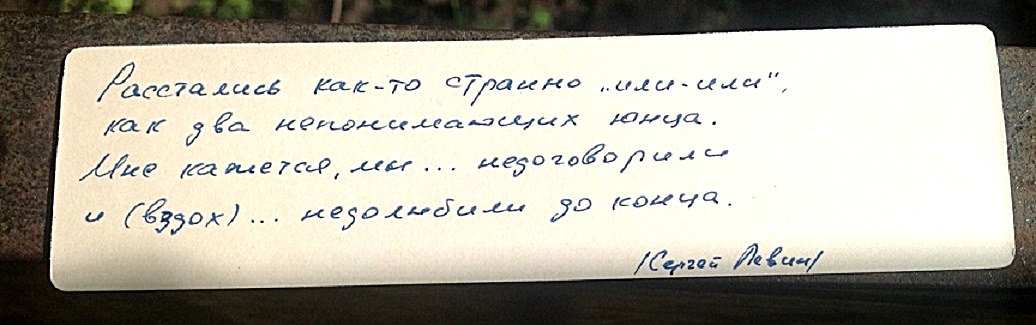 Расстались как-то странно „или-или",
как два непонимающих юнца.
Мне кажется, мы... недоговорили
и (вздох)... недолюбили до конца.
/Сергей Левин/